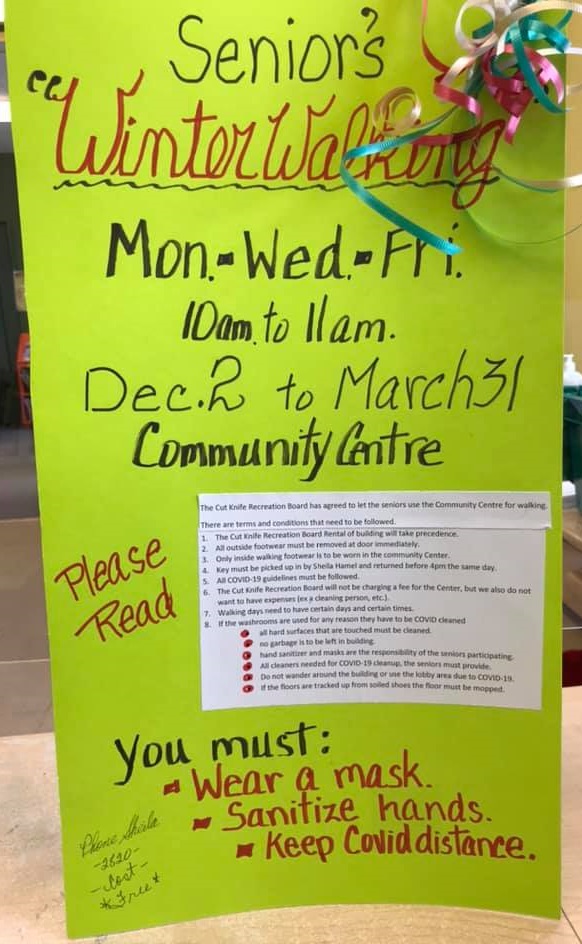 Senior's
"Winter Walking
Mon.-Wed.-Fri.
10am. to 11am.
Dec. 2 to March 31
Community Centre
Please
Read
The Cut Knife Recreation Board has agreed to let the seniors use the Community Centre for walking.
There are terms and conditions that need to be followed.
1. The Cut Knife Recreation Board Rental of building will take precedence.
2. All outside footwear must be removed at door immediately.
3. Only inside walking footwear is to be worn in the community Center.
4. Key must be picked up by Sheila Hamel and returned before 4pm the same day.
5. All COVID-19 guidelines must be followed.
6. The Cut Knife Recreation Board will not be charging a fee for the Center, but we also do not
want to have expenses (ex a cleaning person, etc.).
7. Walking days need to have certain days and certain times.
8. If the washrooms are used for any reason they have to be COVID cleaned
all hard surfaces that are touched must be cleaned.
no garbage is to be left in building.
hand sanitizer and masks are the responsibility of the seniors participating.
All cleaners needed for COVID-19 cleanup, the seniors must provide.
Do not wander around the building or use the lobby area due to COVID-19.
If the floors are tracked up from soiled shoes the floor must be mopped.
You must:
- Wear a mask.
- Sanitize hands.
- Keep Covid distance.
Phone Sheila
-2820-
-Cost-
*Free*